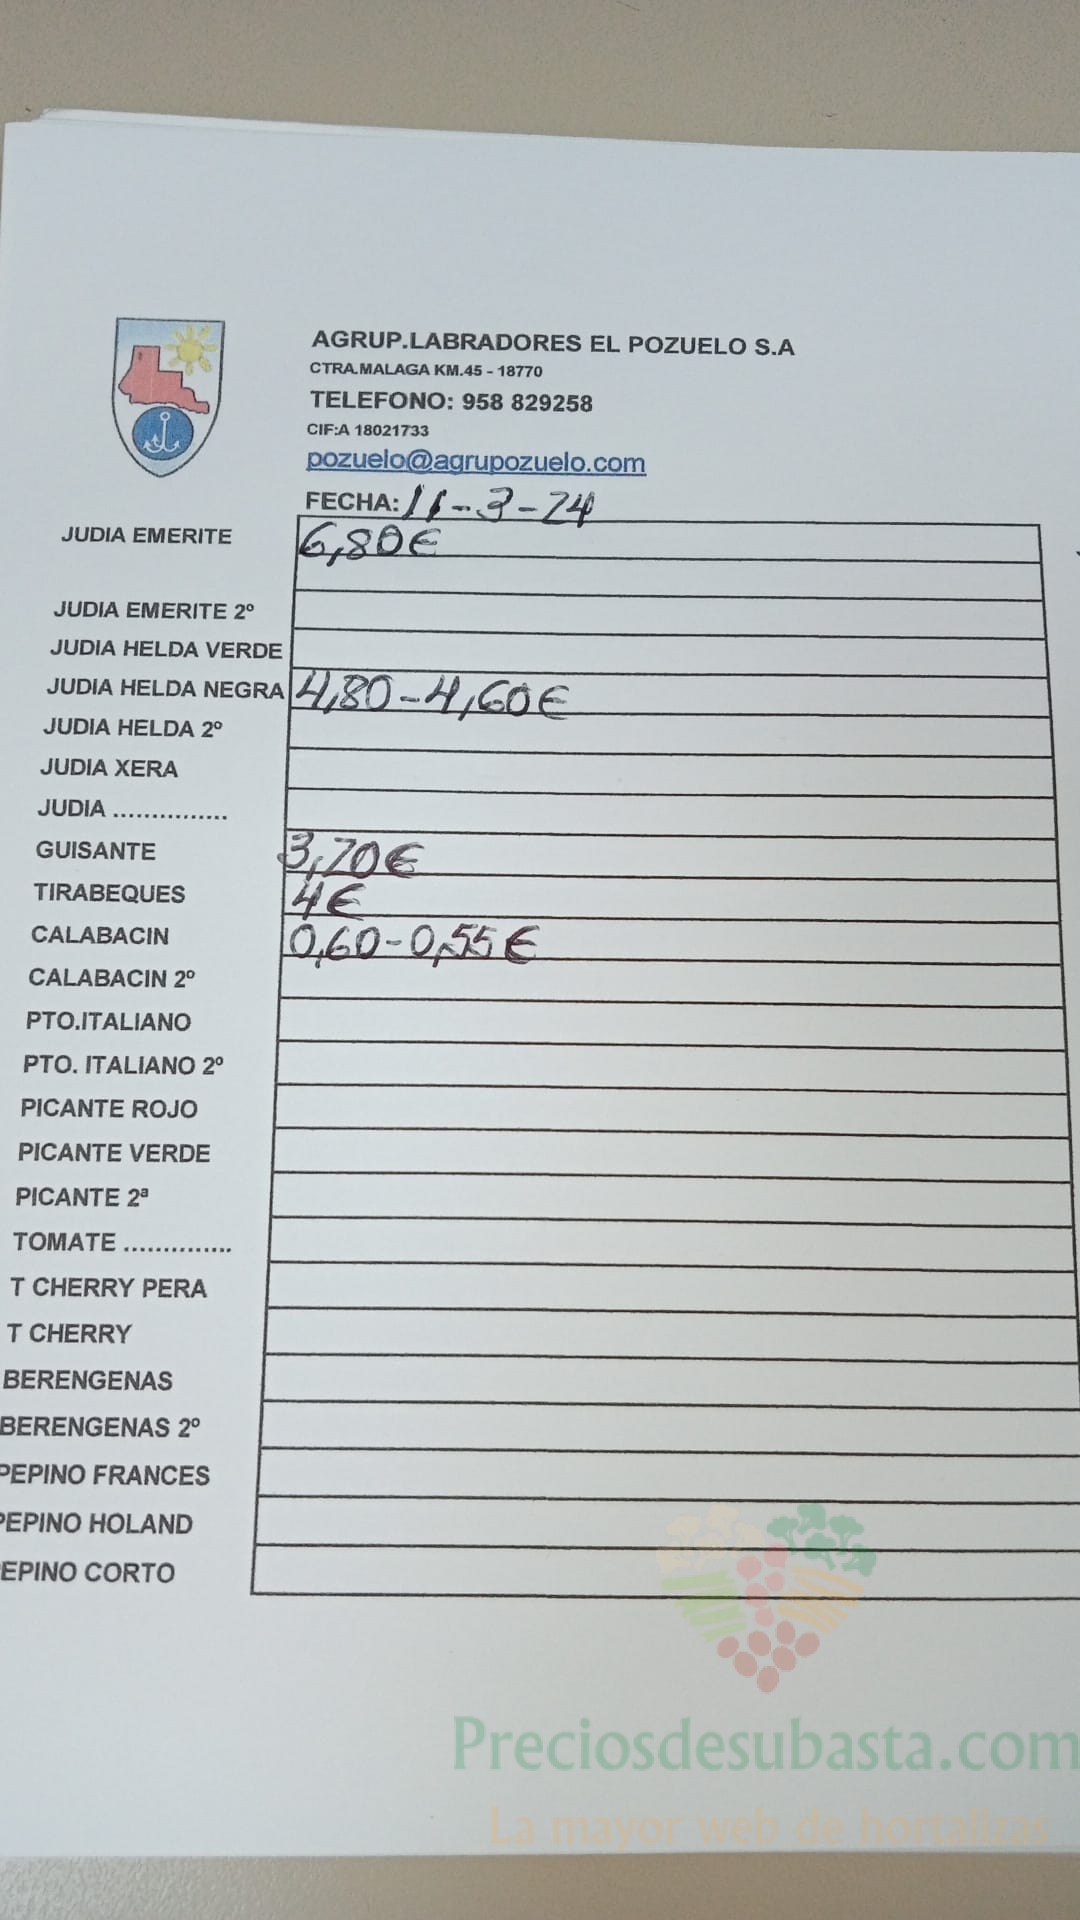 AGRUP.LABRADORES EL POZUELO S.A
CTRA.MALAGA KM.45 - 18770
TELEFONO: 958 829258
CIF:A 18021733
pozuelo@agrupozuelo.com
FECHA: 11-3-24
JUDIA EMERITE 6,80€
JUDIA EMERITE 2º
JUDIA HELDA VERDE
JUDIA HELDA NEGRA 4,80-4,60€
JUDIA HELDA 2º
JUDIA XERA
JUDIA ...............
GUISANTE 3,70€
TIRABEQUES 4€
CALABACIN 0,60-0,55€
CALABACIN 2º
PTO.ITALIANO
PTO. ITALIANO 2º
PICANTE ROJO
PICANTE VERDE
PICANTE 2ª
TOMATE ..............
T CHERRY PERA
T CHERRY
BERENGENAS
BERENGENAS 2º
PEPINO FRANCES
PEPINO HOLAND
EPINO CORTO
Preciosdesubasta.com
La mayor web de hortalizas